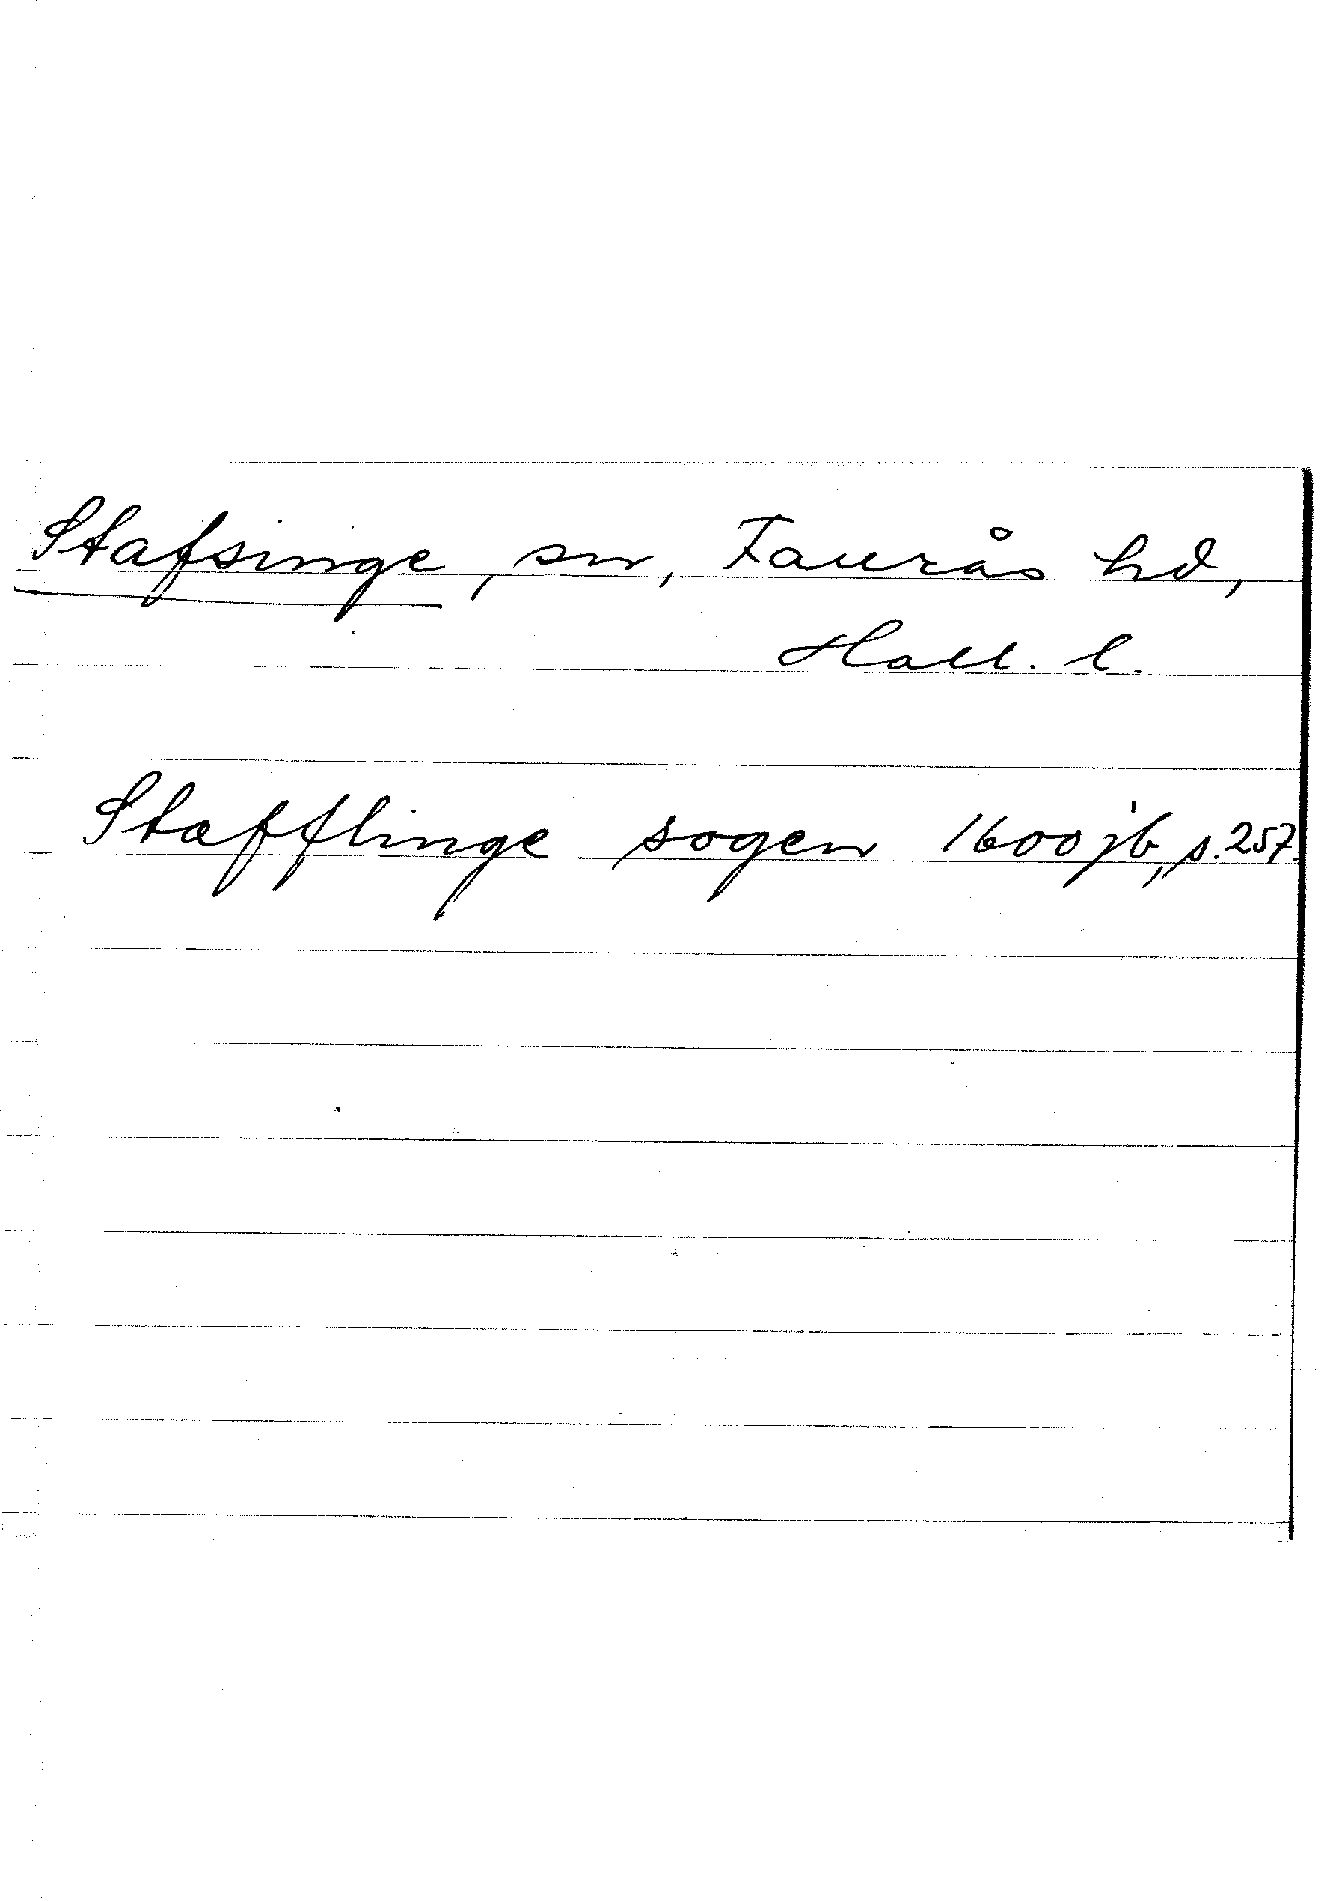 Stafsinge, sn, Faurås hd,
Hall. l.
Stafflinge sogen 1600 jb, s. 257.